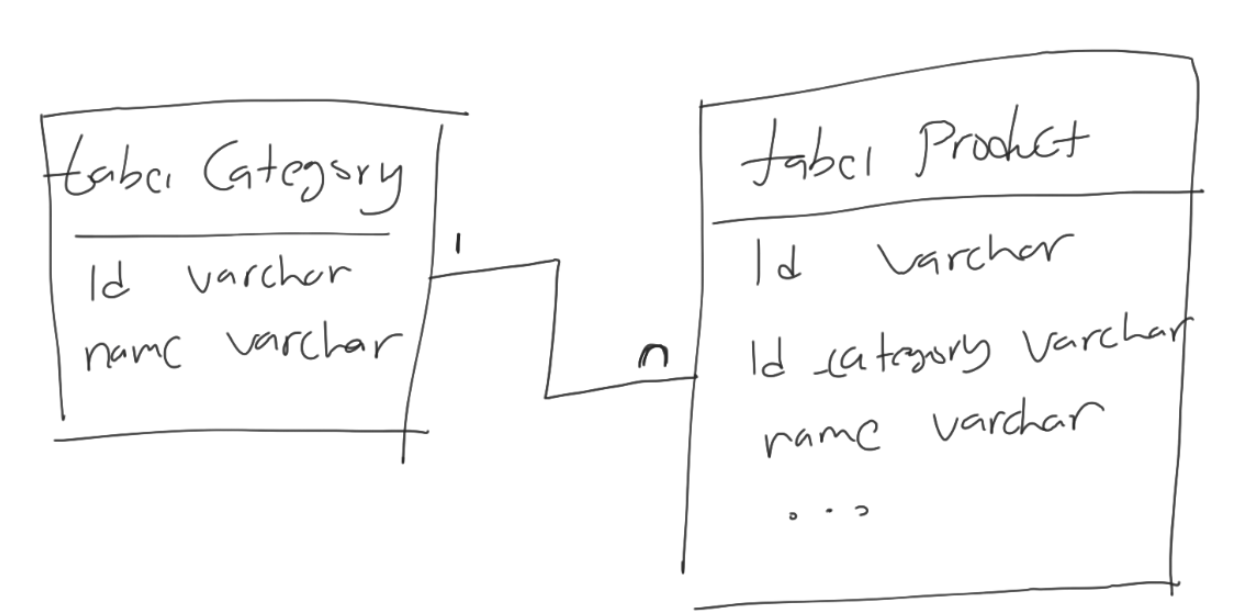 tabel Category
Id varchar
name varchar
1
n
tabel Product
Id varchar
Id_category varchar
name varchar
...